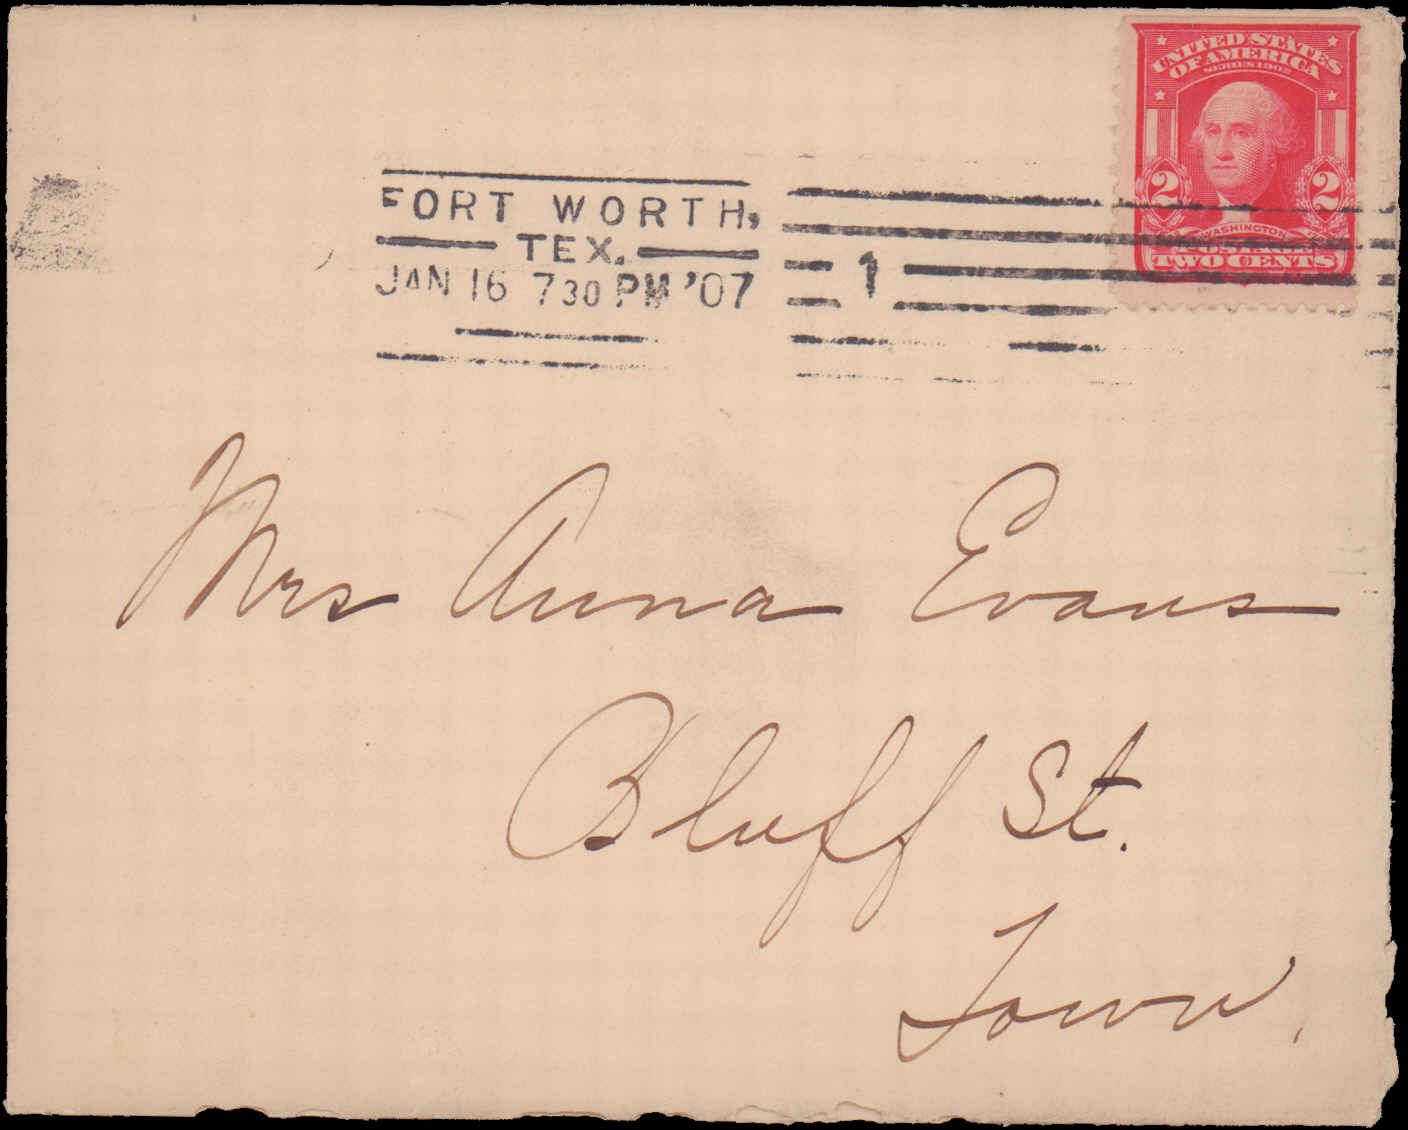 UNITED STATES
OF AMERICA
SERIES 1902
2 2
WASHINGTON
TWO CENTS
FORT WORTH,
TEX.
JAN 16 730 PM '07
1
Mrs Anna Evans
Bluff St.
Town,